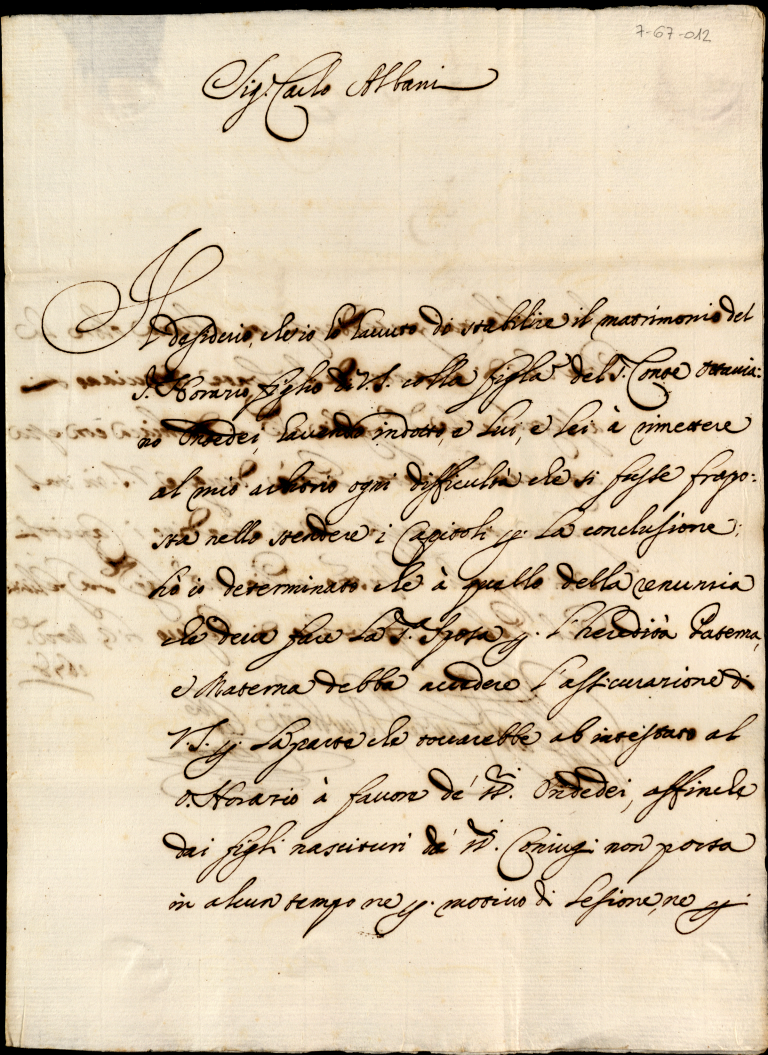 7-67-012
Sig.r Carlo Albani
Il desiderio, che io hò havuto di stabilire il matrimonio del
S. Horatio figlio di V.S. colla figla del S. Conte Ottavia:
no Ondedei, havendo indotto, e Lui, e Lei à rimettere
al mio arbitrio ogni difficultà che si fusse frapo:
sta nello stendere i Capitoli p. La conclusione;
hò io determinato che à quello della renuntia
che deve fare La S.a Sposa p. l'heredità Paterna,
e Materna debba accedere l'assicurazione di
V.S. p. La parte che toccarebbe ab intestato al
S. Horatio à favore de' SS.i Ondedei, affinche
dai figli nascituri da' SS.i Coniugi non possa
in alcun tempo ne p. motivo di Lesione, ne p.